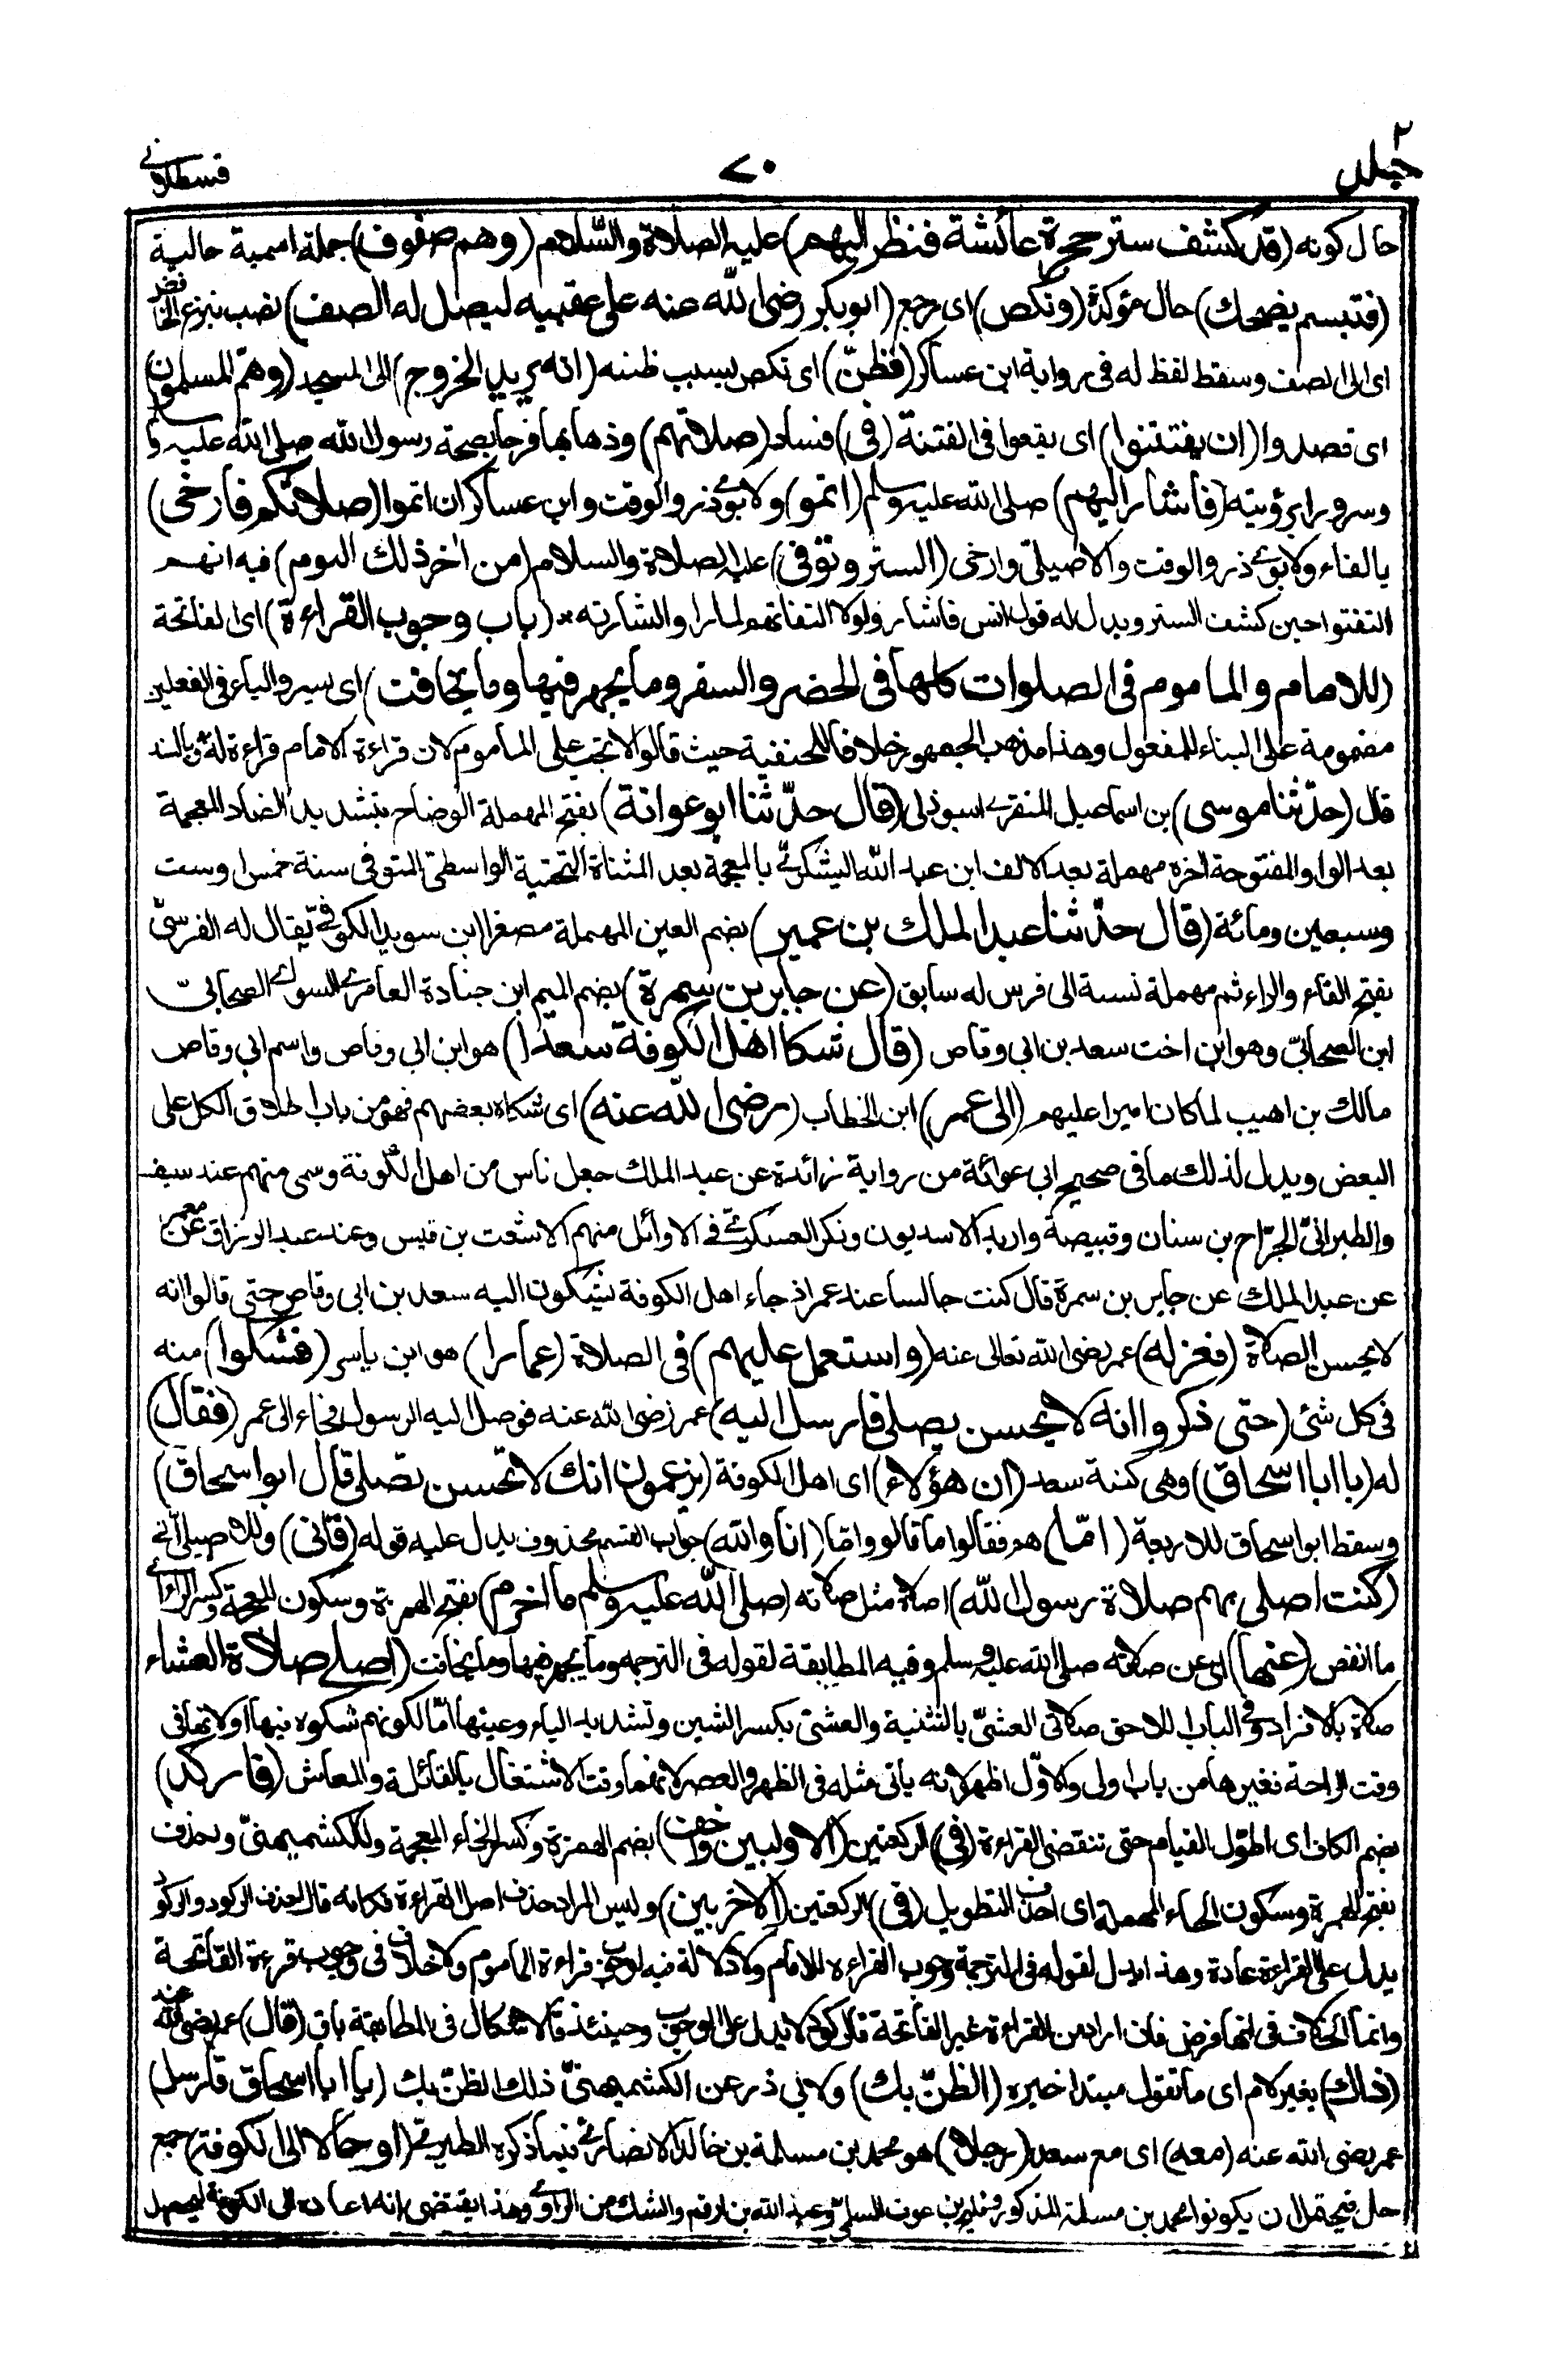 جلد ٢
٧٠
قسطلانی
حال كونه (قد كشف ستر حجرة عائشة فنظر اليهم) عليه الصلاة والسّلام (وهم صفوف) جملة اسمية حالية
(فتبسم يضحك) حال مؤكدة (ونكص) اى رجع (ابو بكر رضى الله عنه على عقبيه ليصل له الصف) نصب بنزع الخافض
اى الى الصف وسقط لفظ له فى رواية ابن عساكر (فظنّ) اى نكص بسبب ظنه (انه يريد الخروج) الى المسجد (وهمّ المسلمون)
اى قصدوا (ان يفتتنوا) اى يقعوا فى الفتنة (فى) فساد (صلاتهم) وذهابها فرحا بصحة رسول الله صلى الله عليه و
وسرورا برؤيته (فأشار اليهم) صلى الله عليه وسلم (اتمو) ولابوى ذر والوقت وابن عساكر ان اتموا (صلاتكم فارخى)
بالفاء ولابوى ذر والوقت والاصيلىّ وارخى (الستر وتوفى) عليه الصلاة والسلام (من اخر ذلك اليوم) فيه انهم
التفتوا حين كشف الستر ويدل له قول انس فاشار ولولا التفاتهم لما راوا اشارته * (باب وجوب القراءة) اى الفاتحة
(للامام والماموم فى الصلوات كلها فى الحضر والسفر وما يجهر فيها وما يخافت) اى يسر والياء فى الفعلين
مضمومة على البناء للمفعول وهذا مذهب الجمهور خلافا للحنفية حيث قالوا لا تجب على المأموم لان قراءة الامام قراءة له وبالسند
قال (حدّثنا موسى) بن اسماعيل المنقرى التبوذكى (قال حدّثنا ابو عوانة) بفتح المهملة الوضاح بتشديد الضاد المعجمة
بعد الواو المفتوحة اخره مهملة بعد الالف ابن عبد الله اليشكرىّ بالمعجمة بعد المثناة التحتية الواسطىّ المتوفى سنة خمس او ست
وسبعين ومائة (قال حدّثنا عبد الملك بن عمير) بضم العين المهملة مصغرا ابن سويد الكوفىّ يقال له الفرسىّ
بفتح الفاء والراء ثم مهملة نسبة الى فرس له سابق (عن جابر بن سمرة) بضم الميم ابن جنادة العامرى السوائى الصحابىّ
ابن الصحابىّ وهو ابن اخت سعد بن ابى وقاص (قال شكا اهل الكوفة سعدا) هو ابن ابى وقاص واسم ابى وقاص
مالك بن اهيب لما كان اميرا عليهم (الى عمر) ابن الخطاب (رضى الله عنه) اى شكاه بعضهم فهو من باب اطلاق الكل على
البعض ويدل لذلك ما فى صحيح ابى عوانة من رواية زائدة عن عبد الملك جعل ناس من اهل الكوفة وسمى منهم عند سيف
والطبرانىّ الجرّاح بن سنان وقبيصة واربد الاسديون وذكر العسكرىّ فى الاوائل منهم الاشعث بن قيس وعند عبد الرزاق عن معمر
عن عبد الملك عن جابر بن سمرة قال كنت جالسا عند عمر اذ جاء اهل الكوفة يشكون اليه سعد بن ابى وقاص حتى قالوا انه
لا يحسن الصلاة (فعزله) عمر رضى الله تعالى عنه (واستعمل عليهم) فى الصلاة (عمارا) هو ابن ياسر (فشكوا) منه
فى كل شئ (حتى ذكروا انه لا يحسن يصلى فارسل اليه) عمر رضى الله عنه فوصل اليه الرسول فجاء الى عمر (فقال)
له (يا ابا اسحاق) وهى كنية سعد (ان هؤلاء) اى اهل الكوفة (يزعمون انك لا تحسن تصلى قال ابو اسحاق)
وسقط ابو اسحاق للاربعة (امّا) هم فقالوا ما قالوا واما (انا والله) جواب القسم محذوف يدل عليه قوله (فانى) وللاصيلى انى
(كنت اصلى بهم صلاة رسول الله) اى صلاة مثل صلاته (صلى الله عليه وسلم ما اخرم) بفتح الهمزة وسكون المعجمة وكسر الراء اى
ما انقص (عنها) اى عن صلاته صلى الله عليه وسلم وفيه المطابقة لقوله فى الترجمة وما يجهر فيها وما يخافت (اصلى صلاة العشاء)
صلاة بالافراد وفى الباب اللاحق صلاتى العشىّ بالتثنية والعشىّ بكسر الشين وتشديد الياء وعينها امّا لكونهم شكوه فيها او لانها فى
وقت الراحة فغيرها من باب اولى والاوّل اظهر لانه ياتى مثله فى الظهر والعصر لانهما وقت الاشتغال بالقائلة والمعاش (فاركد)
بضم الكاف اى اطوّل القيام حتى تنقضى القراءة (فى) الركعتين (الاوليين واخف) بضم الهمزة وكسر الخاء المعجمة وللكشميهنىّ وحذف
بفتح الهمزة وسكون الحاء المهملة اى احذف التطويل (فى) الركعتين (الاخريين) وليس المراد حذف اصل القراءة فكانه قال احذف الركود والركود
يدل على القراءة عادة وهذا يدل لقوله فى الترجمة وجوب القراءة للامام ولا دلالة فيه لوجوب قراءة المأموم ولا خلاف فى وجوب قراءة الفاتحة
وانما الخلاف فى انها فرض فان اراد من القراءة غير الفاتحة فالركود لا يدل على الوجوب وحينئذ فالاشكال فى المطابقة باق (قال) عمر رضى الله عنه
(ذاك) بغير لام اى ما تقول مبتدا خبره (الظنّ بك) ولابى ذر عن الكشميهنىّ ذلك الظنّ بك (يا ابا اسحاق فارسل)
عمر رضى الله عنه (معه) اى مع سعد (رجلا) هو محمد بن مسلمة بن خالد الانصارىّ فيما ذكره الطبرىّ (او رجالا الى الكوفة) جمع
رجل فيحتمل ان يكونوا محمد بن مسلمة المذكور ومليح بن عوف السلمىّ وعبد الله بن ارقم والشك من الراوى وهذا يقتضى انه اعاده الى الكوفة ليحصل